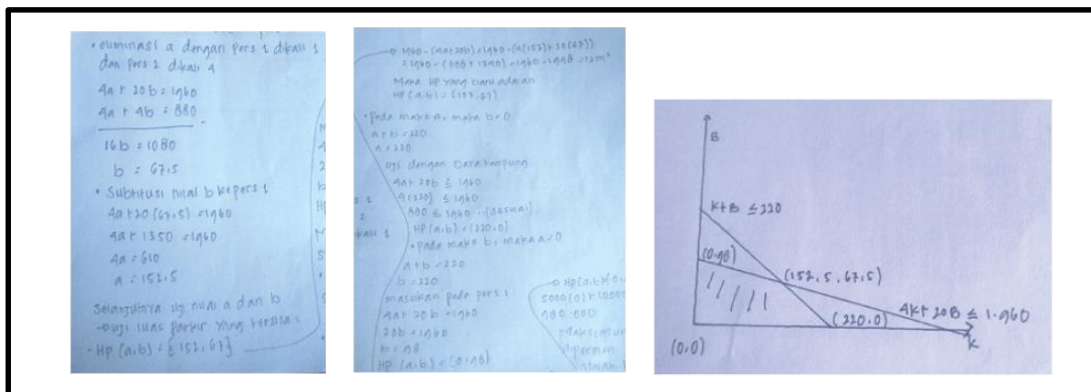 • eliminasi a dengan pers 1 dikali 1
dan pers 2 dikali 4
4a + 20b = 1960
4a + 4b = 880
16b = 1080
b = 67,5
• Subtitusi nilai b ke pers 1
4a + 20 (67,5) = 1960
4a + 1350 = 1960
4a = 610
a = 152,5
Selanjutnya uji nilai a dan b
uji luas parkir yang tersisa
- HP (a,b) = {152, 67}
1960 - (4a + 20b) = 1960 - (4(152) + 20(67))
Maka HP yang baru adalah
HP (a,b) = (152, 67)
• pada maks a, maka b = 0
a + b = 220
a = 220
uji dengan Daya tampung
4a + 20b ≤ 1960
4(220) ≤ 1960
880 ≤ 1960
HP (a,b) = (220,0)
• pada maks b, maka a = 0
a + b = 220
b = 220
masukan pada pers 1
4a + 20b = 1960
20b = 1960
b = 98
HP (a,b) = (0,98)
HP (a,b)
5000 (0) + 10000
980.000
B
K+B ≤ 220
(0,98)
(152,5, 67,5)
4K + 20B ≤ 1.960
(220,0)
K
(0,0)